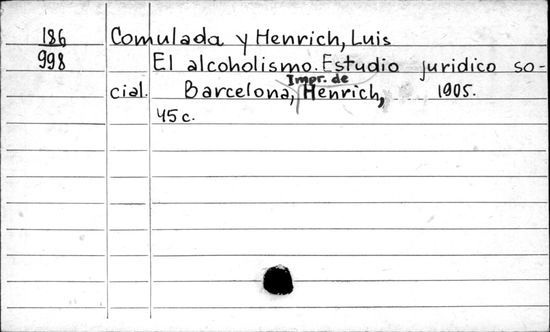 186 Comulada y Henrich, Luis
998 El alcoholismo. Estudio juridico so-
cial. Barcelona, Impr. de Henrich, 1905.
45 c.